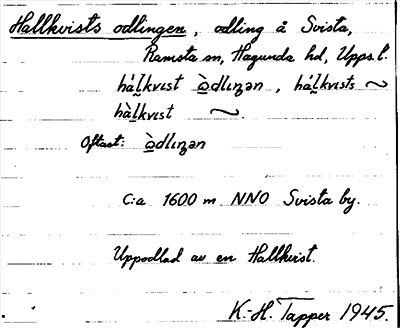 Hallkvists odlingen, odling å Svista,
Ramsta sn, Hagunda hd, Upps.l.
hál̰kvɪst òdlɪŋən, hál̰kvɪsts ~
hàl̰kvɪst ~.
Oftast: òdlɪŋən
C:a 1600 m NNO Svista by.
Uppodlad av en Hallkvist.
K.-H. Tapper 1945.